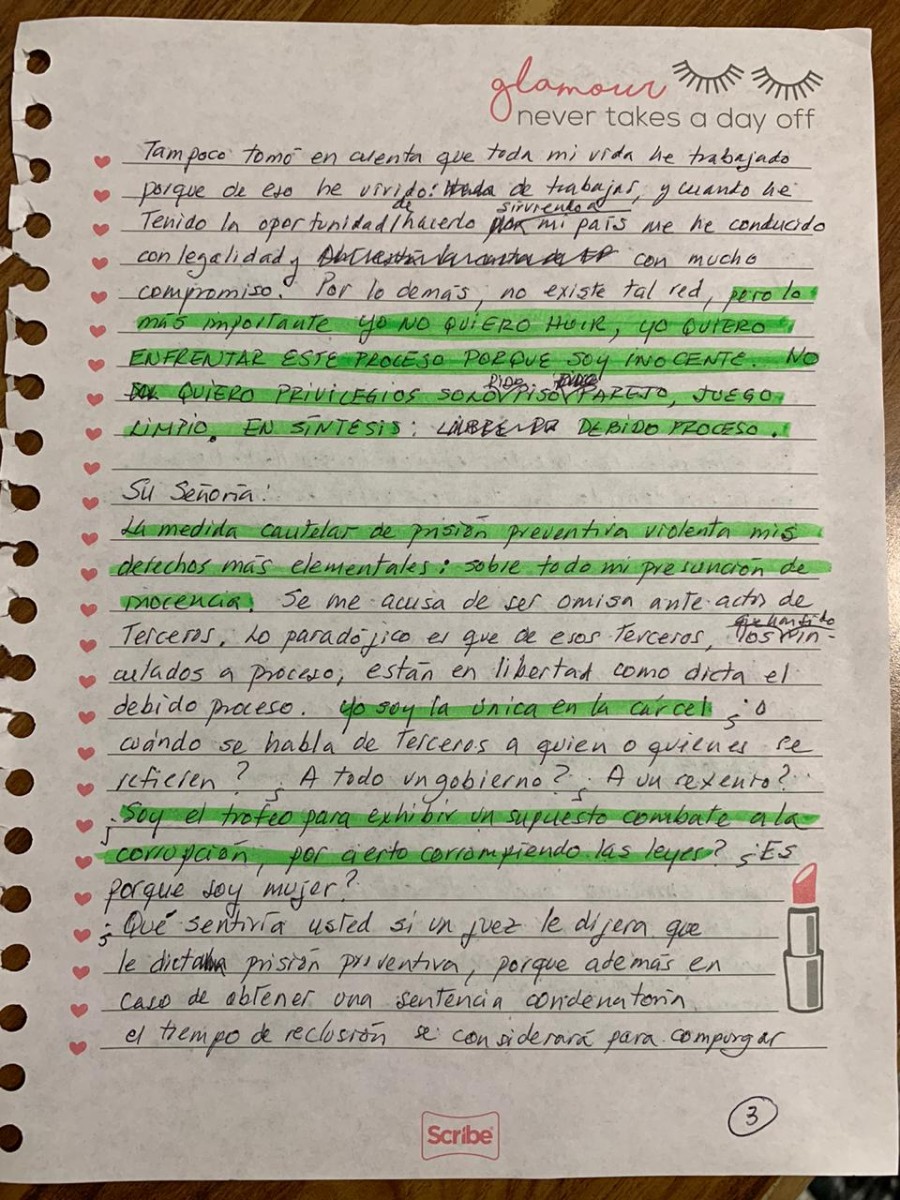 glamour
never takes a day off
Tampoco tomó en cuenta que toda mi vida he trabajado
porque de eso he vivido: de trabajar, y cuando he
Tenido la oportunidad de hacerlo sirviendo a mi país me he conducido
con legalidad y con mucho
compromiso. Por lo demás, no existe tal red, pero lo
más importante yo NO QUIERO HUIR, YO QUIERO
ENFRENTAR ESTE PROCESO PORQUE SOY INOCENTE. NO
QUIERO PRIVILEGIOS SOLO PIDO PISO PAREJO, JUEGO
LIMPIO. EN SÍNTESIS: DEBIDO PROCESO.
Su Señoría:
La medida cautelar de prisión preventiva violenta mis
derechos más elementales: sobre todo mi presunción de
inocencia. Se me acusa de ser omisa ante actos de
Terceros. Lo paradójico es que de esos Terceros, los que han sido vin-
culados a proceso, están en libertad como dicta el
debido proceso. Yo soy la única en la cárcel ¿O
cuándo se habla de Terceros a quien o quienes se
refieren? ¿A todo un gobierno? ¿A un sexenio?
¿Soy el trofeo para exhibir un supuesto combate a la
corrupción, por cierto corrompiendo las leyes? ¿Es
porque soy mujer?
¿Qué sentiría usted si un juez le dijera que
le dicta prisión preventiva, porque además en
caso de obtener una sentencia condenatoria
el tiempo de reclusión se considerará para compurgar
3
Scribe